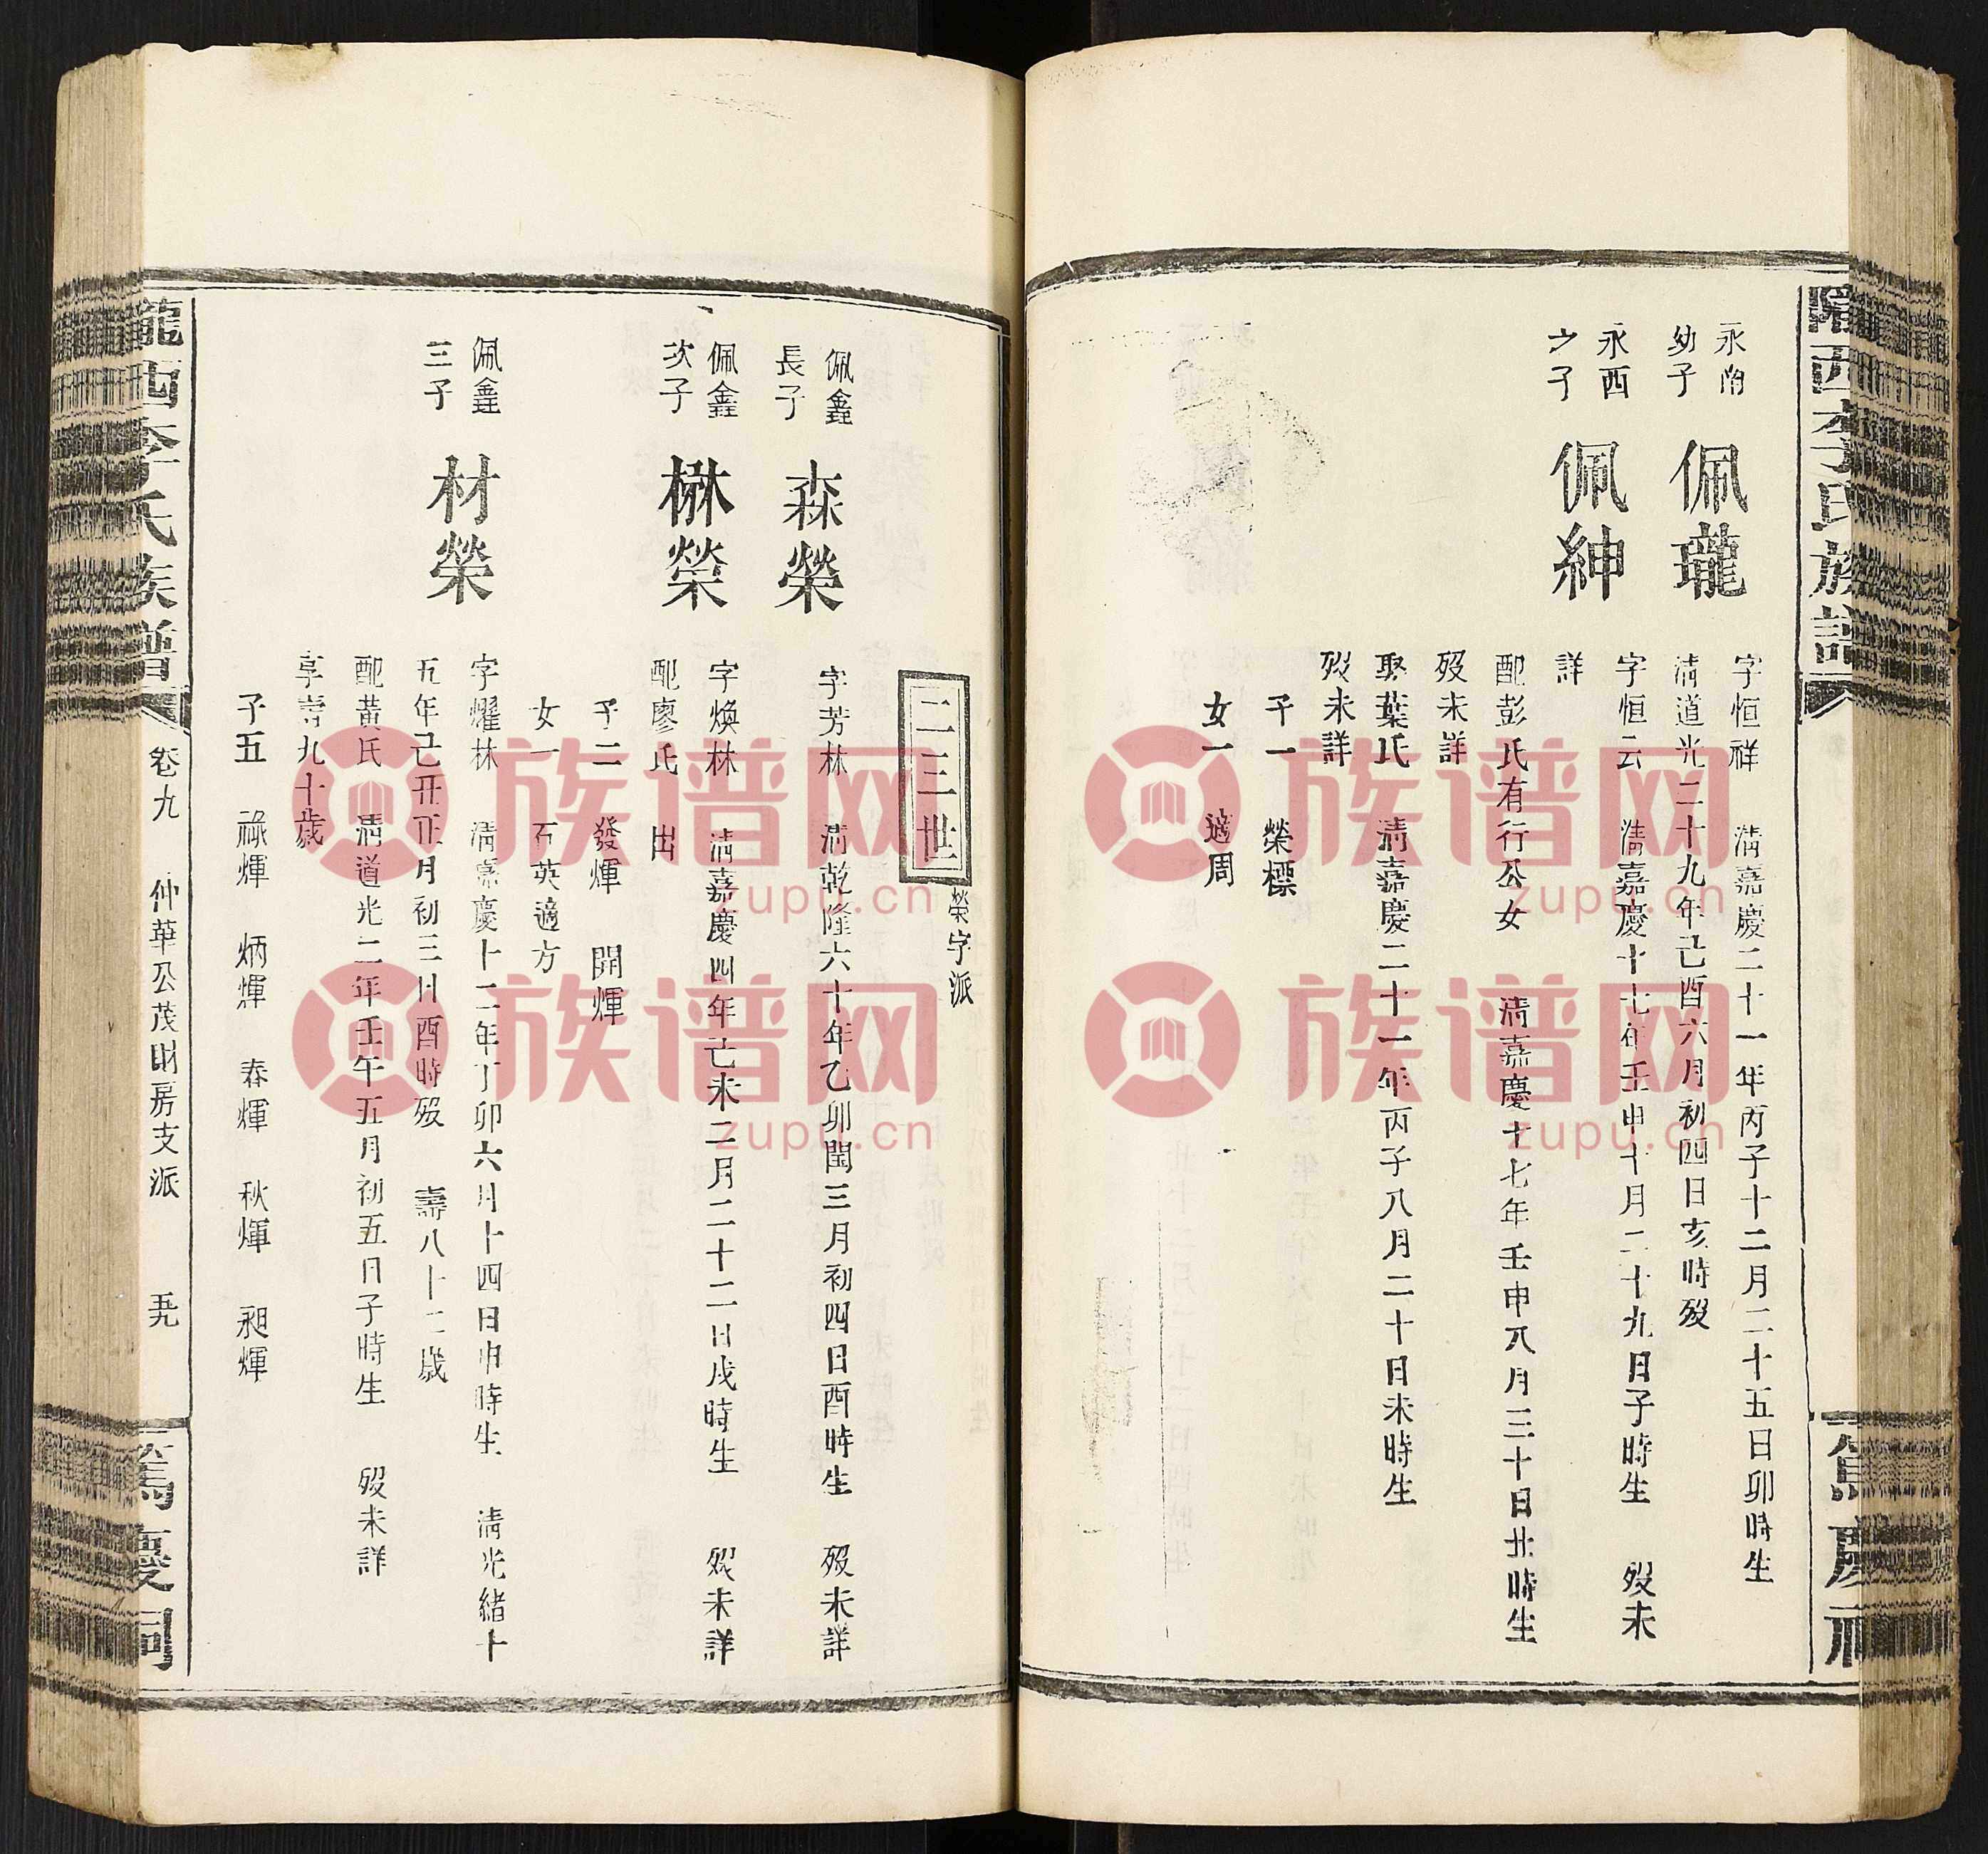 隴西李氏族譜
篤慶祠
永南
幼子
佩瓏
字恒祥 清嘉慶二十一年丙子十二月二十五日卯時生
清道光二十九年己酉六月初四日亥時殁
永西
之子
佩紳
字恒云 清嘉慶十七年壬申十月二十九日子時生 殁未
詳
配彭氏有行公女 清嘉慶十七年壬申八月三十日丑時生
殁未詳
娶葉氏 清嘉慶二十一年丙子八月二十日未時生
殁未詳
子一 榮標
女一 適周
二三世
榮字派
佩鑫
長子
森榮
字芳林 清乾隆六十年乙卯閏三月初四日酉時生 殁未詳
佩鑫
次子
楙榮
字煥林 清嘉慶四年己未二月二十二日戌時生 殁未詳
配廖氏 出
子二 發煇 開煇
女一 石英適方
佩鑫
三子
材榮
字燿林 清嘉慶十二年丁卯六月十四日申時生 清光緒十
五年己丑正月初三日酉時殁 壽八十二歲
配黃氏 清道光二年壬午五月初五日子時生 殁未詳
享壽九十歲
子五 祿煇 炳煇 春煇 秋煇 昶煇
隴西李氏族譜
卷九 仲華公茂財房支派 五九
篤慶祠
族谱网
zupu.cn
族谱网
zupu.cn
族谱网
zupu.cn
族谱网
zupu.cn